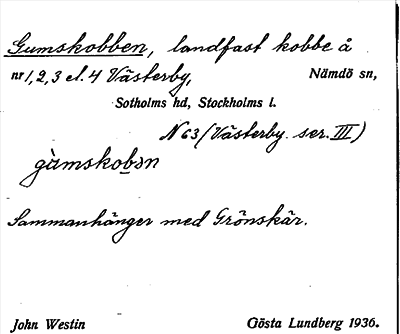 Gumskobben, landfast kobbe å
nr 1, 2, 3 el. 4 Västerby, Nämdö sn,
Sotholms hd, Stockholms l.
N 63 (Västerby. ser. III)
gùmskobən
Sammanhänger med Grönskär.
John Westin Gösta Lundberg 1936.